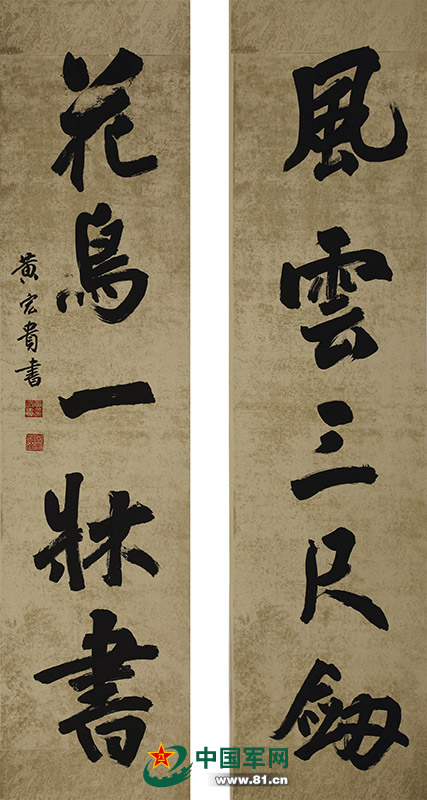 風雲三尺劔
花鳥一牀書
黄宏貴書
中国军网
www.81.cn